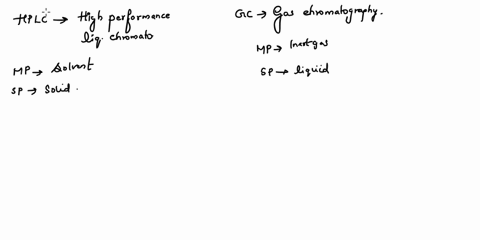 HPLC → High performance
liq. chromato
MP → Solvent
SP → Solid.
GC → Gas chromatography.
MP → Inert gas
SP → liquid